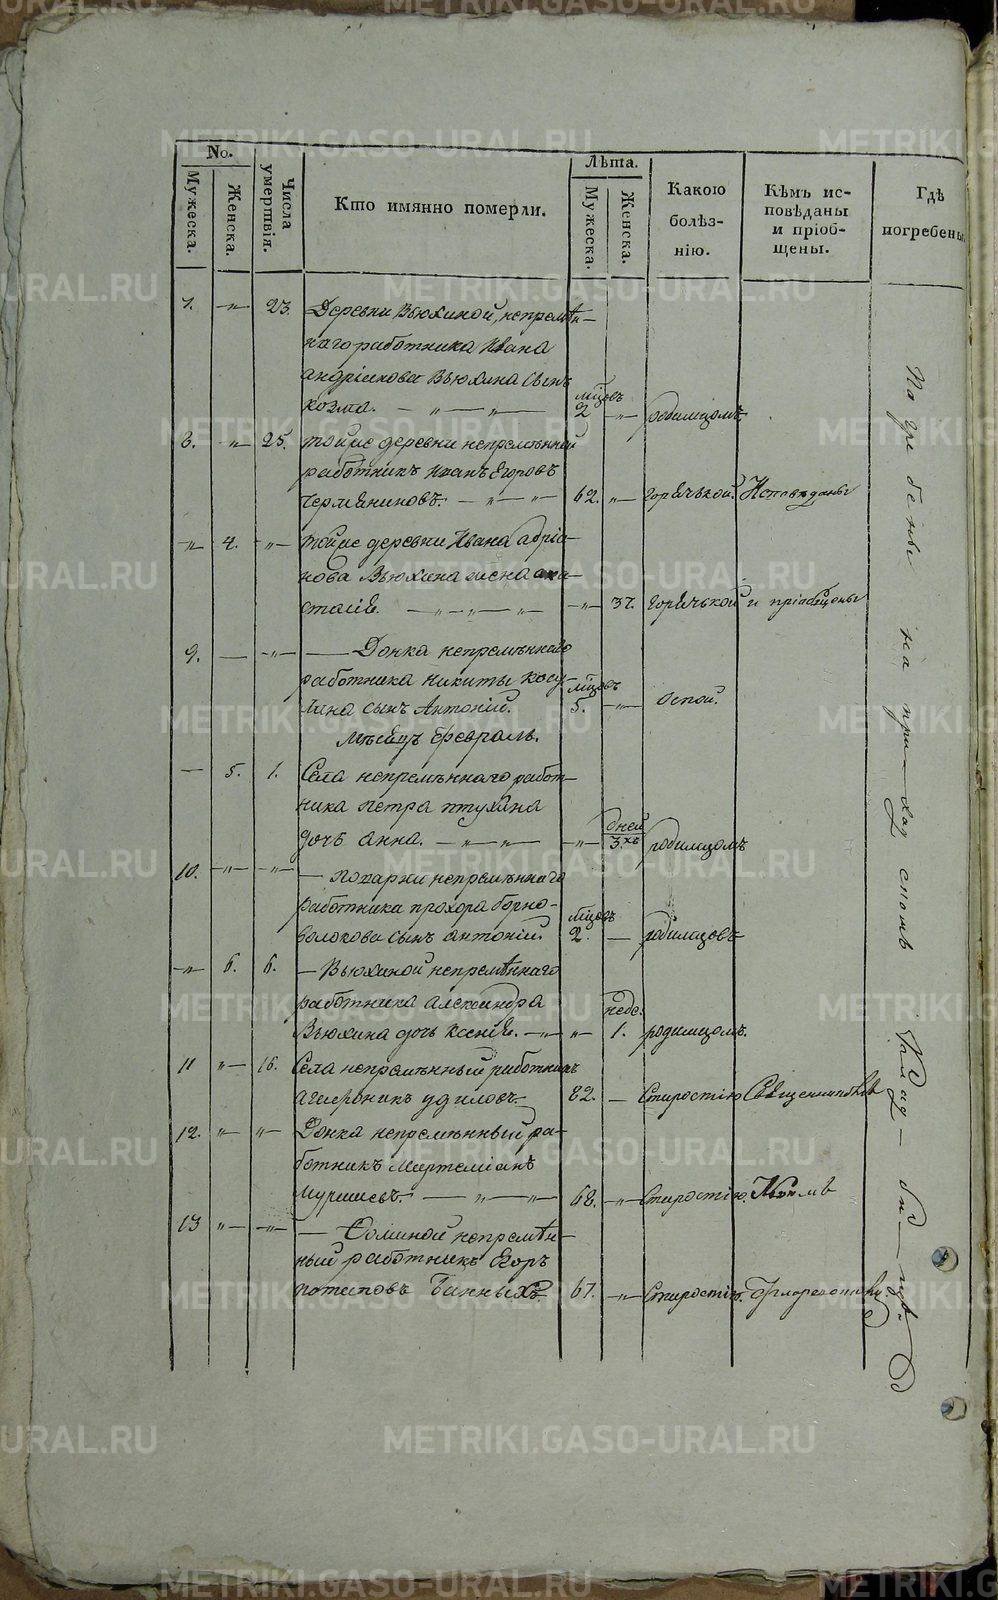 METRIKI.GASO-URAL.RU
No.
Мужеска.
Женска.
Числа умертвія.
Кто имянно померли.
Лѣта.
Мужеска.
Женска.
Какою болѣз-
нію.
Кѣмъ ис-
повѣданы
и пріоб-
щены.
Гдѣ
погребены
7. " 23. Деревни Вьюхиной, непремѣн-
наго работника Ивана
андріянова Вьюхина сынъ
козма. мцовъ 2 " родимцомъ.
8. " 25. тойже деревни непремѣнной
работникъ Иванъ Егоровъ
Чермениновъ. 62. " горячькой. Исповѣданы
" 4. " тойже деревни Ивана адріа-
нова Вьюхина жена ана-
стасія. " 37. горячькой и пріобщены
9. — " — Донка непремѣннаго
работника никиты косу-
лина сынъ Антоній. мцовъ 5. " оспой.
Мѣсяцъ Февраль.
— 5. 1. Села непремѣннаго работ-
ника петра птухина
дочь анна. " дней 3хъ родимцомъ
10. " " — токарки непремѣннаго
работника прохора борно-
волокова сынъ антоній. мцовъ 2. — родимцовъ
" 6. 6. — Вьюхиной непремѣннаго
работника александра
Вьюхина дочь ксенія. " неде. 1. родимцомъ.
11 " 16. Села непремѣнный работникъ
удиловъ. 82. — Старостію Священникомъ
12. " " Донка непремѣнный ра-
ботникъ Мартеміанъ
68. " Старостію.
13 " " — Фоминой непремѣн-
ный работникъ Егоръ
потаповъ Банныхъ. 67. " Старостію.
Погребены на приходскомъ кладбищѣ